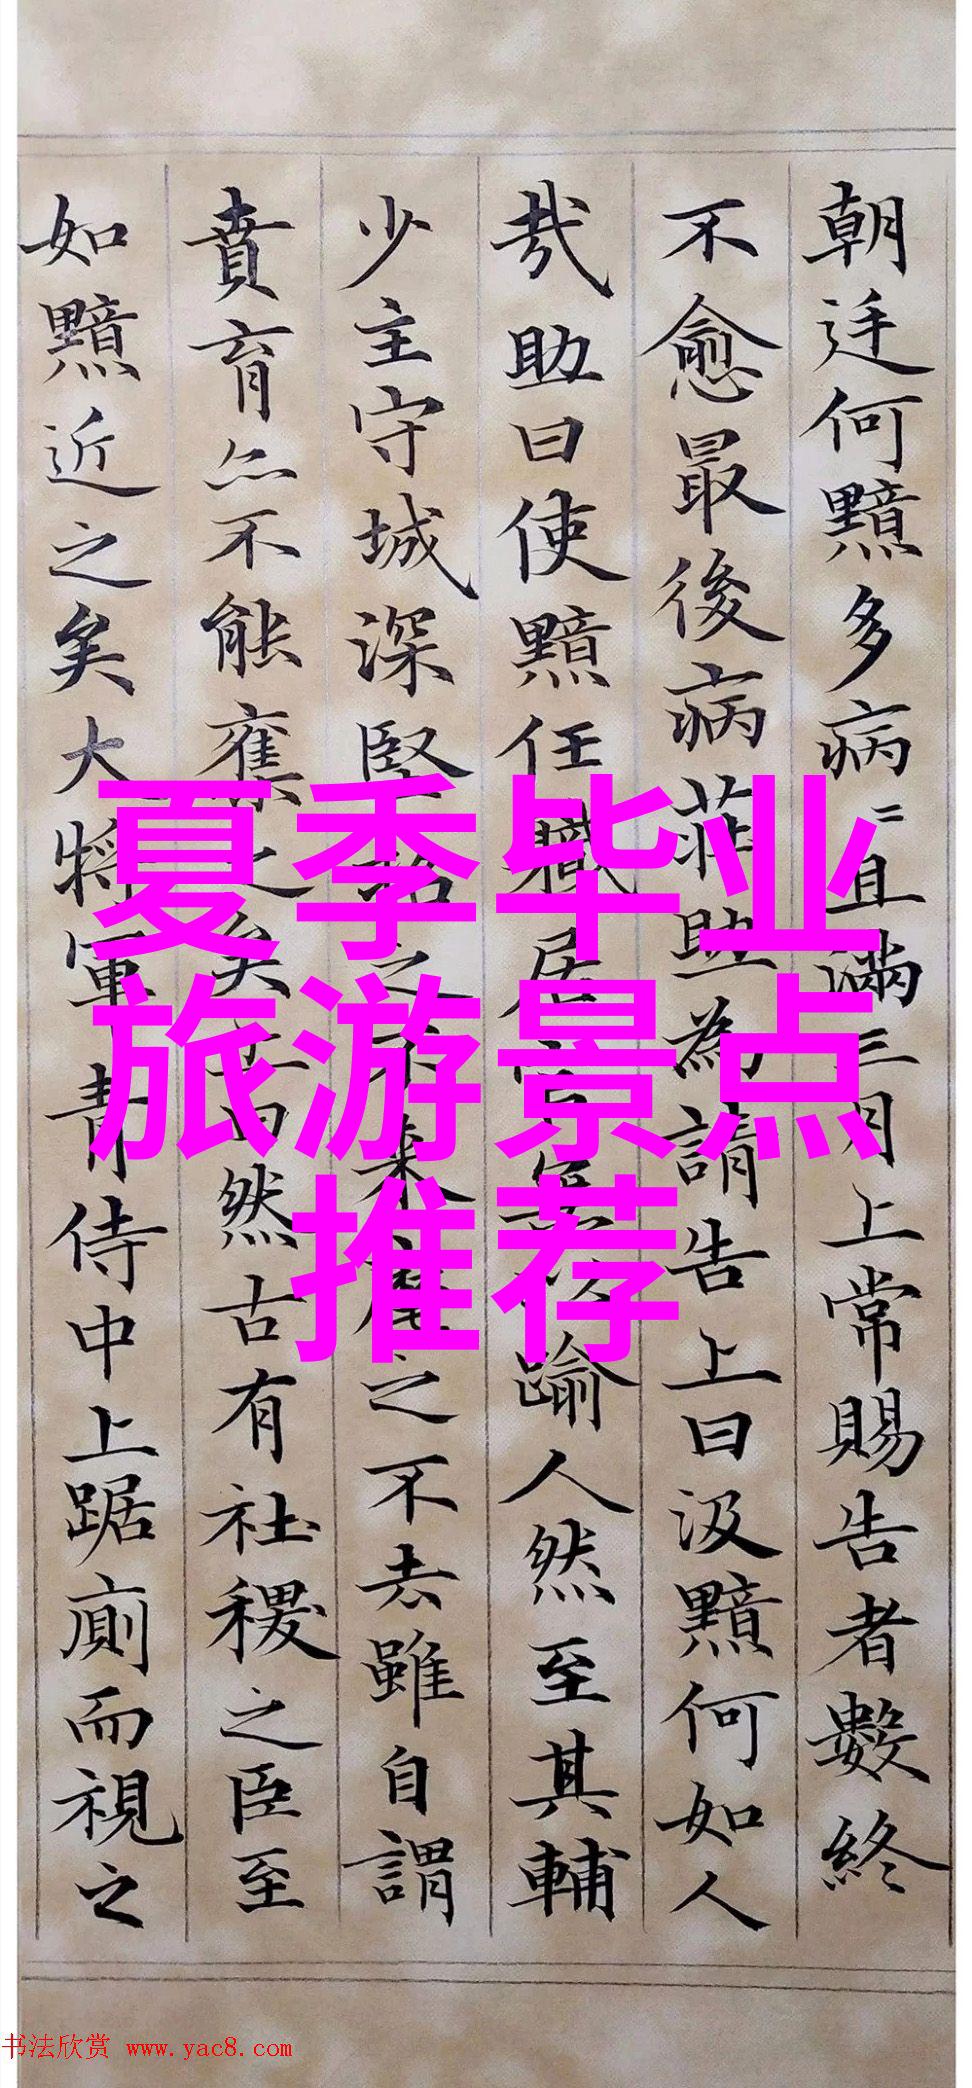 朝廷何黯多病二且滿三月上常賜告者數終
不愈最後病莊助為請告上曰汲黯何如人
㢤助曰使黯任職居踰人然至其輔
少主守城深堅之來之不去雖自謂
賁育亦不能奪之矣上曰然古有社稷之臣至
如黯近之矣大將軍青侍中上踞廁而視之
夏季毕业
旅游景点
推荐
书法欣赏 www.yac8.com